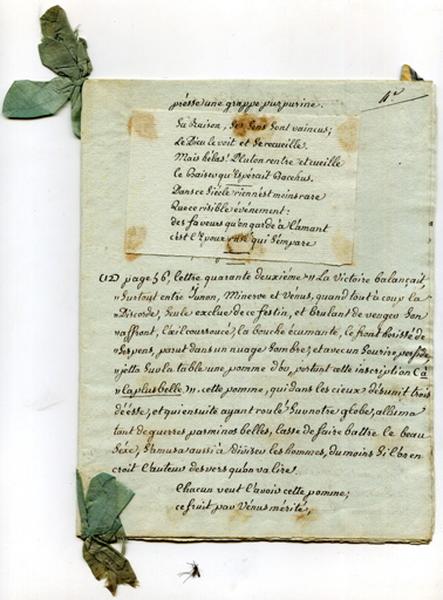 4e
presse une grappe purpurine.
Sa Raison, Ses Sens Sont vaincus;
Le Dieu le voit et Se recueille.
Mais hélas! Pluton rentre et cueille
Le Baiser qu'Espérait Bacchus.
Dans ce Siécle rien n'est moins rare
Que ce risible événement:
des faveurs qu'on garde à L'amant
c'est L'Epoux qui S'empare
(12) page 56, lettre quarante deuxiéme " La Victoire balançait,
" Surtout entre Junon, Minerve et Vénus, quand tout à coup la
" Discorde, Seule exclue de ce festin, et brulant de venger Son
" affront, L'œil courroucé, la bouche écumante, le front hérissé de
" Serpens, parut dans un nuage Sombre; et avec un Sourire perfide,
" jetta Sur la table une pomme d'or, portant cette inscription (à
" la plus belle) ". cette pomme, qui dans les cieux désunit trois
déésse, et qui ensuite ayant roulé Sur notre globe, alluma
tant de guerres parmi nos belles, lasse de faire battre le beau
Séxe, S'amusa aussi à diviser les hommes, du moins Si l'on en
croit L'auteur des vers qu'on va lire.
Chacun veut L'avoir cette pomme;
ce fruit par Vénus mérité,